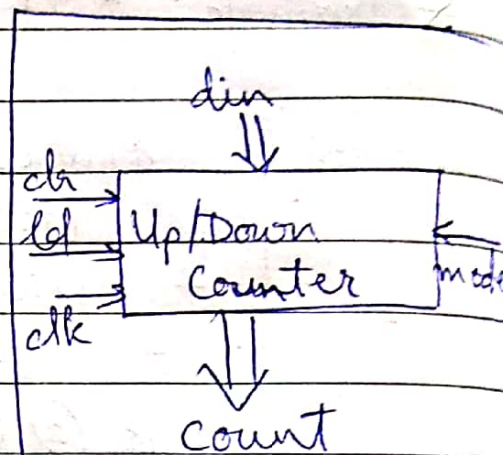 din
clr
ld
Up/Down
Counter
mode
clk
count